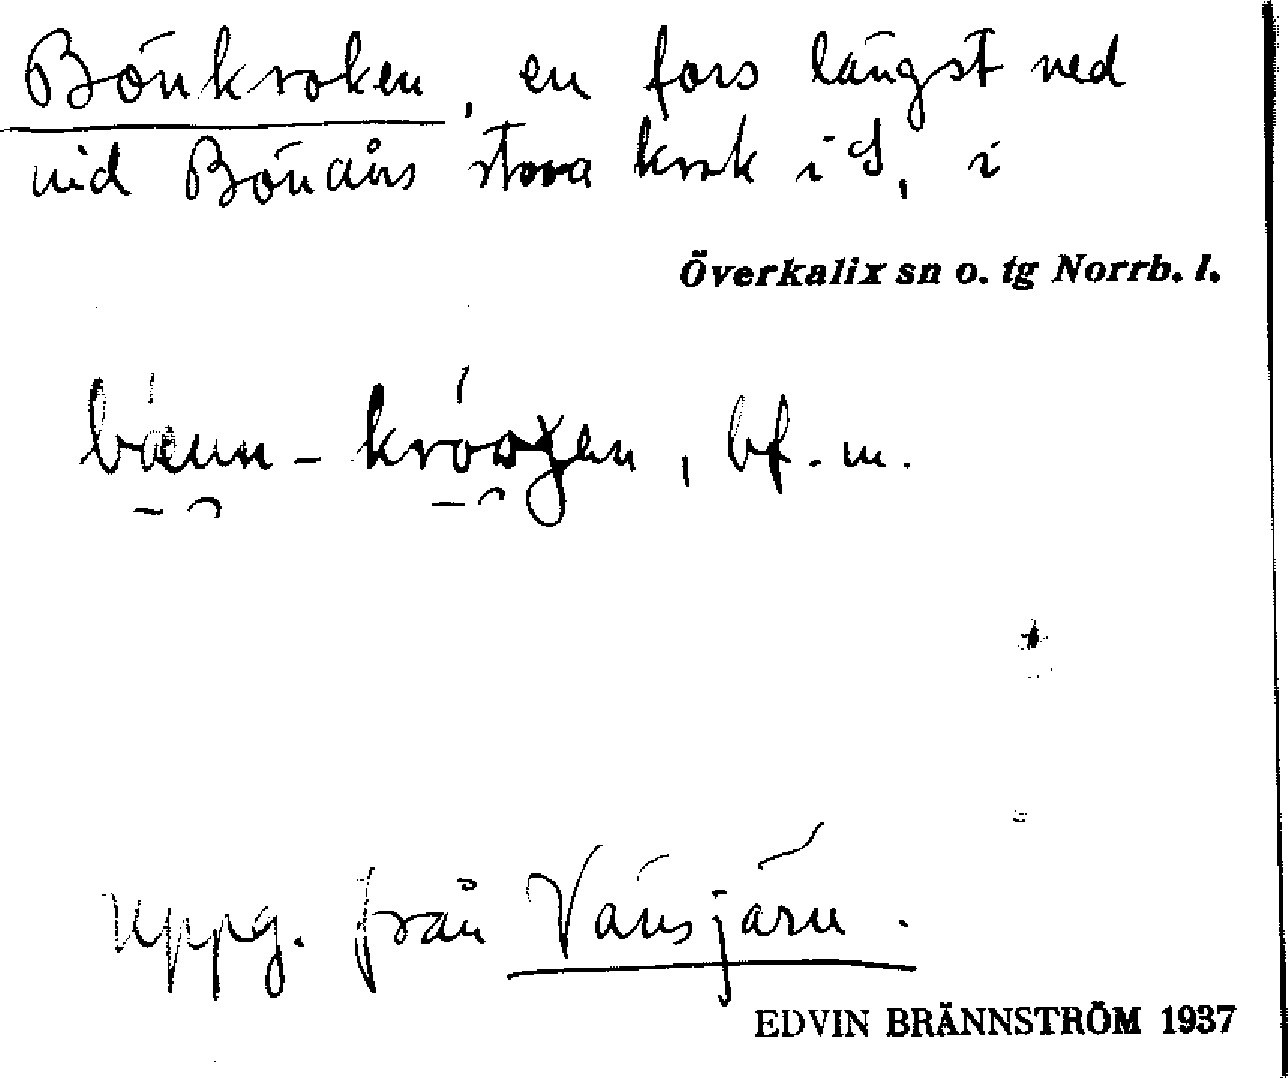 Bönkroken, en fors längst ned
vid Bönåns stora krok i S, i
Överkalix sn o. tg Norrb. l.
bänn-króogen, bf. m.
uppg. från Vänsjärn.
EDVIN BRÄNNSTRÖM 1937